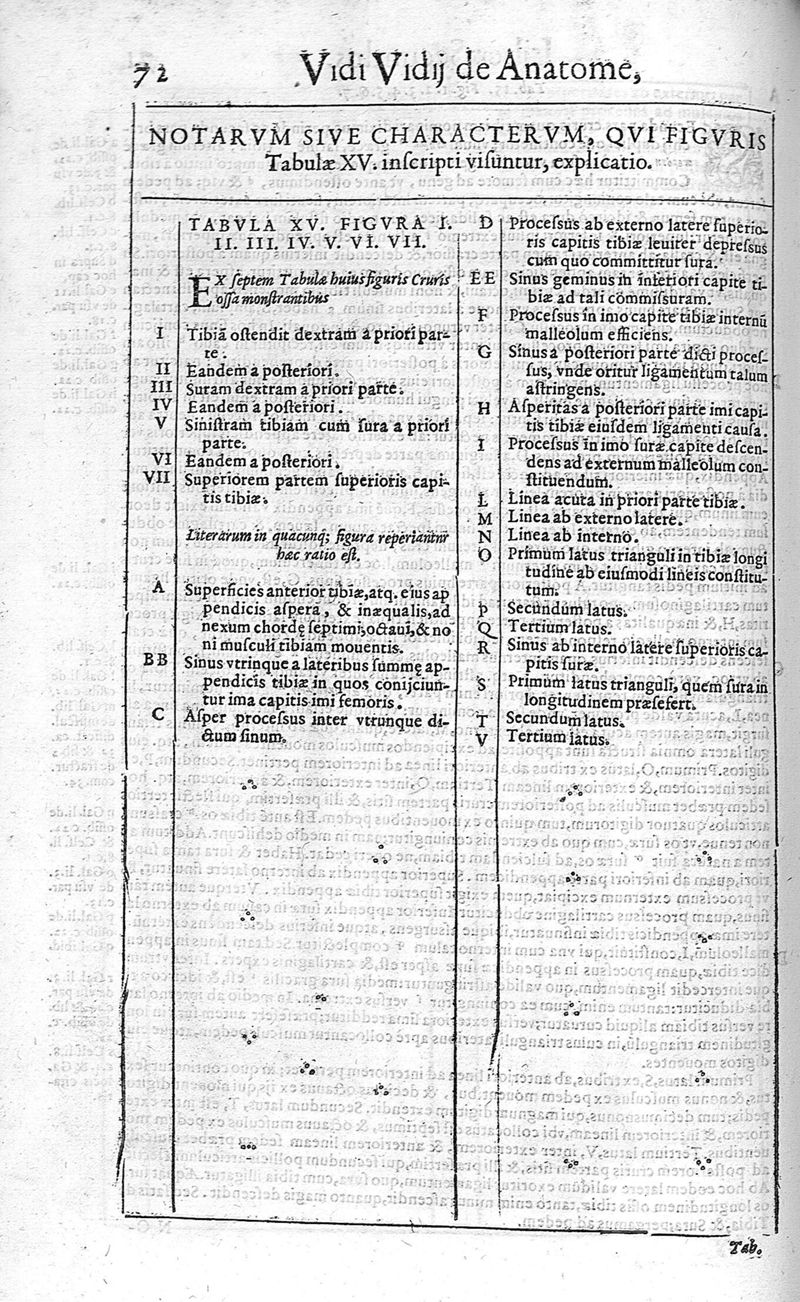 72 Vidi Vidij de Anatome,
NOTARVM SIVE CHARACTERVM, QVI FIGVRIS
Tabulæ XV. inſcripti viſuntur, explicatio.
TABVLA XV. FIGVRA I.
II. III. IV. V. VI. VII.
EX ſeptem Tabulæ huius figuris Cruris
oſſa monſtrantibus
I Tibiã oſtendit dextram a priori par-
te.
II Eandem a poſteriori.
III Suram dextram a priori parte.
IV Eandem a poſteriori.
V Siniſtram tibiam cum ſura a priori
parte.
VI Eandem a poſteriori.
VII Superiorem partem ſuperioris capi-
tis tibiæ.
Literarum in quacunq; figura reperiantur
hæc ratio eſt.
A Superficies anterior tibiæ, atq. eius ap
pendicis aſpera, & inæqualis, ad
nexum chordę ſeptimi, octaui, & no
ni muſculi tibiam mouentis.
BB Sinus vtrinque a lateribus ſummę ap-
pendicis tibiæ in quos conijciun-
tur ima capitis imi femoris.
C Aſper proceſſus inter vtrunque di-
ctum ſinum.
D Proceſſus ab externo latere ſuperio-
ris capitis tibiæ leuiter depreſſus
cum quo committitur ſura.
EE Sinus geminus in inferiori capite ti-
biæ ad tali commiſſuram.
F Proceſſus in imo capite tibiæ internũ
malleolum efficiens.
G Sinus a poſteriori parte dicti proceſ-
ſus, vnde oritur ligamentum talum
aſtringens.
H Aſperitas a poſteriori parte imi capi-
tis tibiæ eiuſdem ligamenti cauſa.
I Proceſſus in imo ſuræ capite deſcen-
dens ad externum malleolum con-
ſtituendum.
L Linea acuta in priori parte tibiæ.
M Linea ab externo latere.
N Linea ab interno.
O Primum latus trianguli in tibiæ longi
tudine ab eiuſmodi lineis conſtitu-
tum.
P Secundum latus.
Q Tertium latus.
R Sinus ab interno latere ſuperioris ca-
pitis ſuræ.
S Primum latus trianguli, quem ſura in
longitudinem præſefert.
T Secundum latus.
V Tertium latus.
Tab.